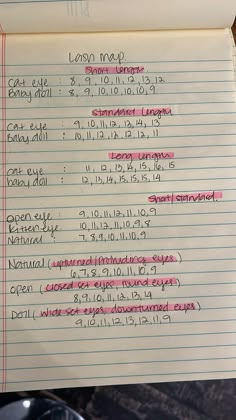 Lash map
Short Lengths
Cat eye : 8, 9, 10, 11, 12, 13, 12
Baby doll : 8, 9, 10, 10, 10, 10, 9
Standard Lengths
Cat eye : 9, 10, 11, 12, 13, 14, 13
Baby doll : 10, 11, 12, 12, 12, 12, 11
Long Lengths
Cat eye : 11, 12, 13, 14, 15, 16, 15
baby doll : 12, 13, 14, 15, 15, 15, 14
Short/Standard
Open eye : 9, 10, 11, 12, 11, 10, 9
Kitten eye : 10, 11, 12, 11, 10, 9, 8
Natural : 7, 8, 9, 10, 11, 10, 9
Natural (upturned/Protruding eyes)
6, 7, 8, 9, 10, 11, 10, 9
Open (closed set eyes, round eyes)
8, 9, 10, 11, 12, 13, 14
Doll (wide set eyes, downturned eyes)
9, 10, 11, 12, 13, 12, 11, 9